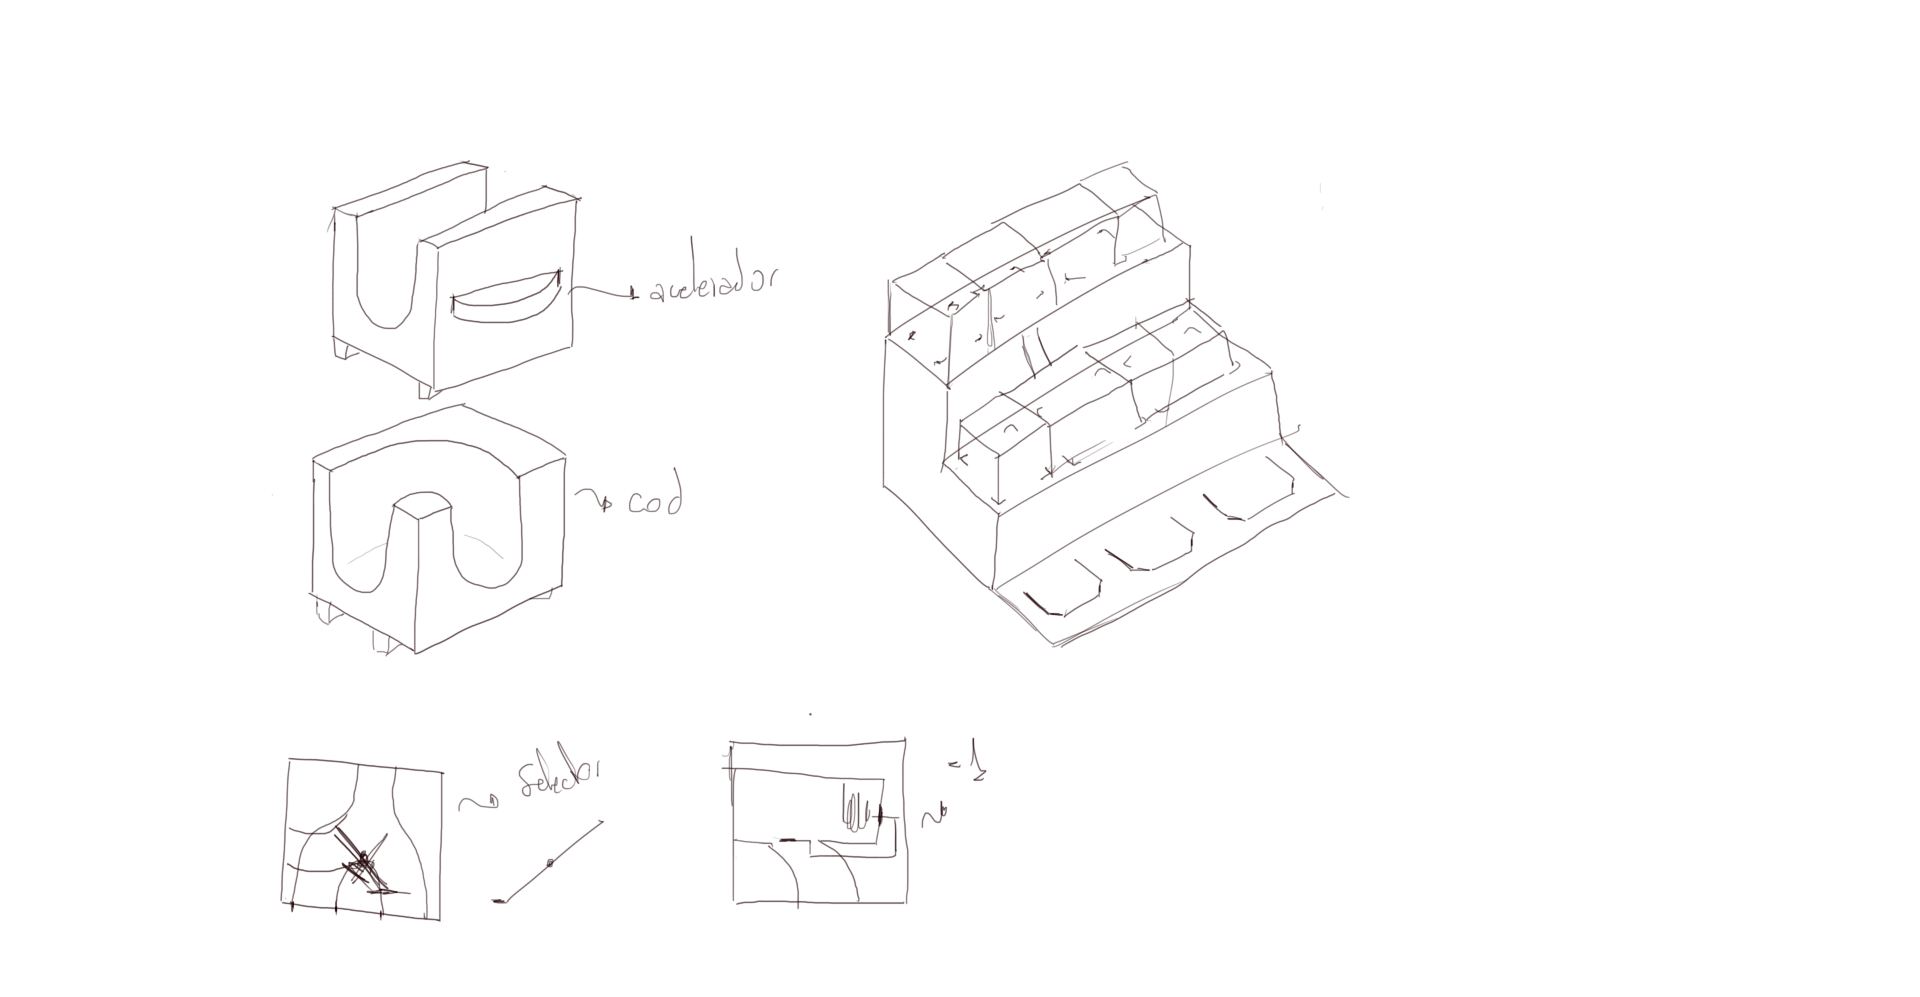 acelerador
cod
Selector